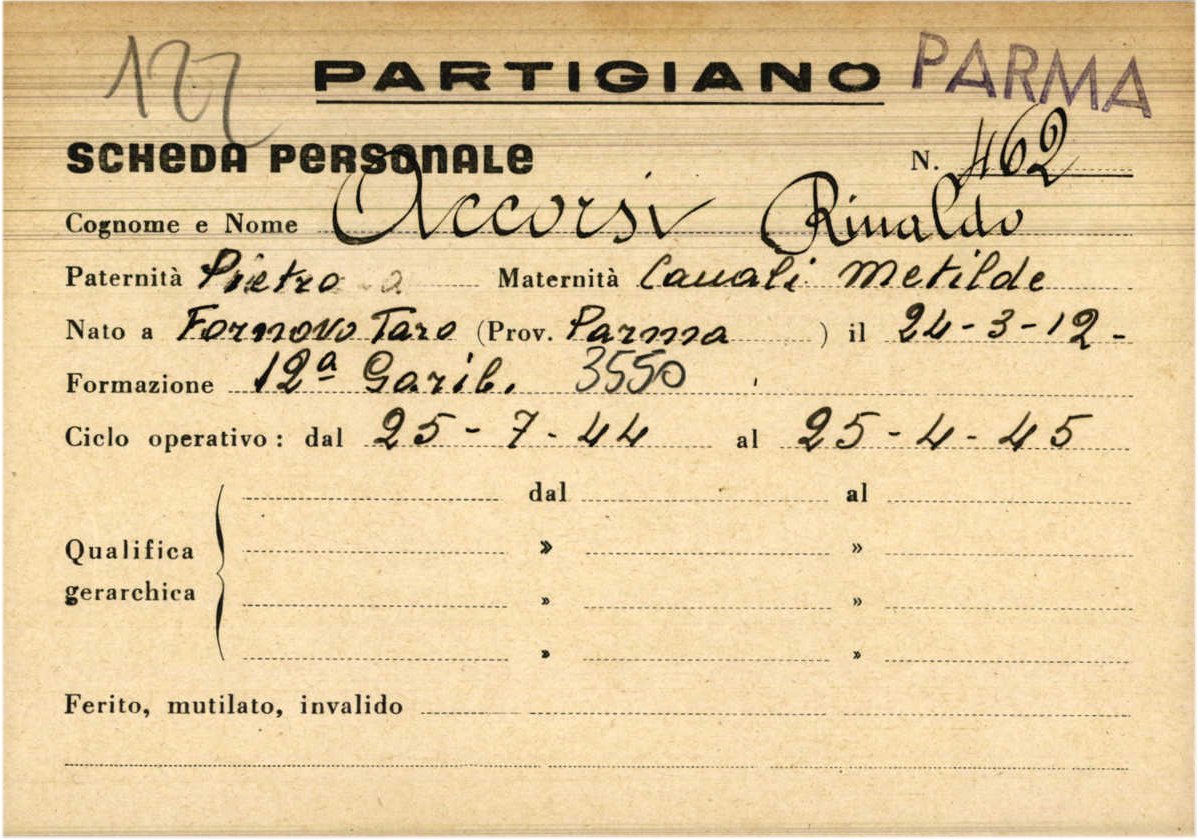 122 PARTIGIANO PARMA
SCHEDA PERSONALE N. 462
Cognome e Nome Accorsi Rinaldo
Paternità Pietro Maternità Cavali Metilde
Nato a Fornovo Taro (Prov. Parma ) il 24-3-12-
Formazione 12ª Garib. 3550
Ciclo operativo: dal 25-7-44 al 25-4-45
dal al
Qualifica » »
gerarchica » »
» »
Ferito, mutilato, invalido